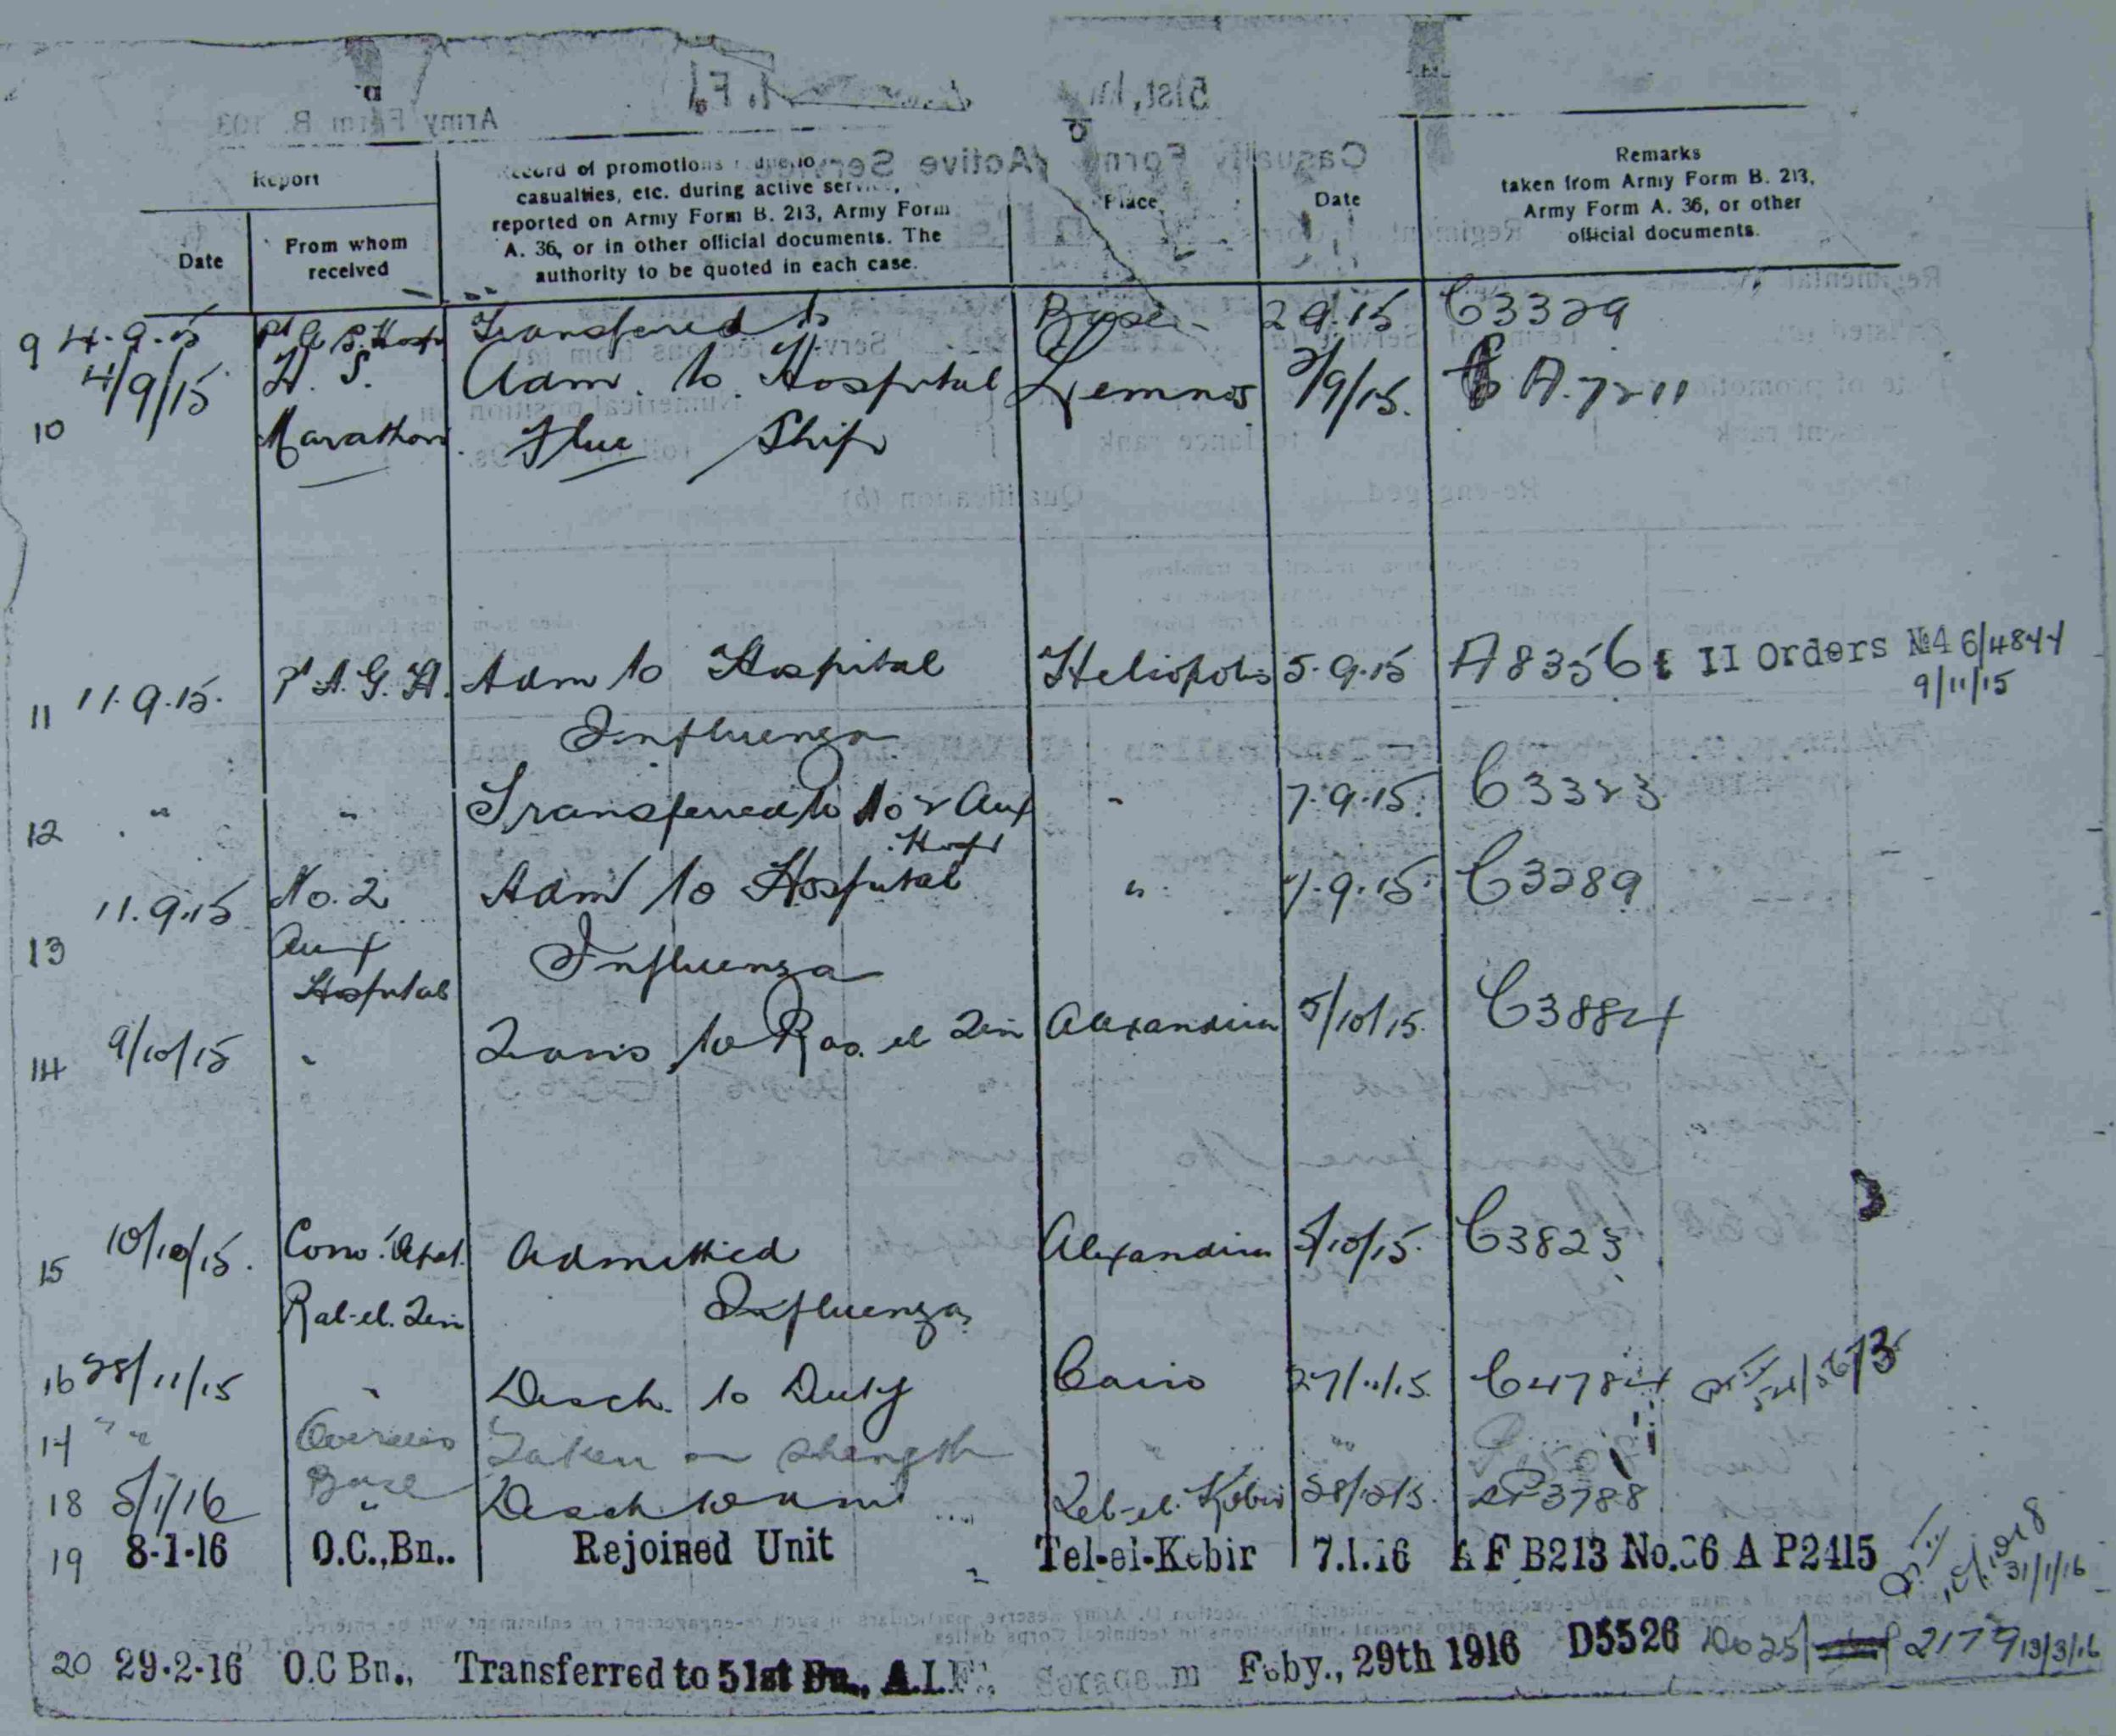 Army Form B. 103
51st,
Casualty Form Active Service
Report
Date
From whom
received
Record of promotions
casualties, etc. during active service,
reported on Army Form B. 213, Army Form
A. 36, or in other official documents. The
authority to be quoted in each case.
Place
Date
Remarks
taken from Army Form B. 213,
Army Form A. 36, or other
official documents.
9 4.9.15 Transferred to Base 2 9.15 C3329
4/9/15 H. S. Adm. to Hospital Lemnos /9/15. A.7211
10 Marathon Flue Ship
11 11.9.15. 1st A. G. H. Adm to Hospital Heliopolis 5.9.15 A8356 II Orders №4 6/4844
9/11/15
Influenza
12 " " Transferred to No 2 Aux " 7.9.15. C3323
Hospl
11.9.15 No. 2 Adm to Hospital " 7.9.15. C3289
13 Aux Influenza
Hospital
14 9/10/15 " Trans to Ras el Tin Alexandria 5/10/15. C3884
15 10/10/15. Admitted Alexandria 5/10/15. C3823
Ral-el. Tin Influenza
16 28/11/15 " Disch. to Duty Cairo 27/11/15. C4784
17 " " Overseas Taken on strength " "
Base
18 5/1/16 " Disch to Tel-el-Kebir 28/12/15. 3788
19 8-1-16 O.C.,Bn.. Rejoined Unit Tel-el-Kebir 7.1.16 A F B213 No.36 A P2415
31/1/16
20 29-2-16 O.C Bn., Transferred to 51st Bn., A.I.F. Feby., 29th 1916 D5526 Do 25 2177 13/3/16